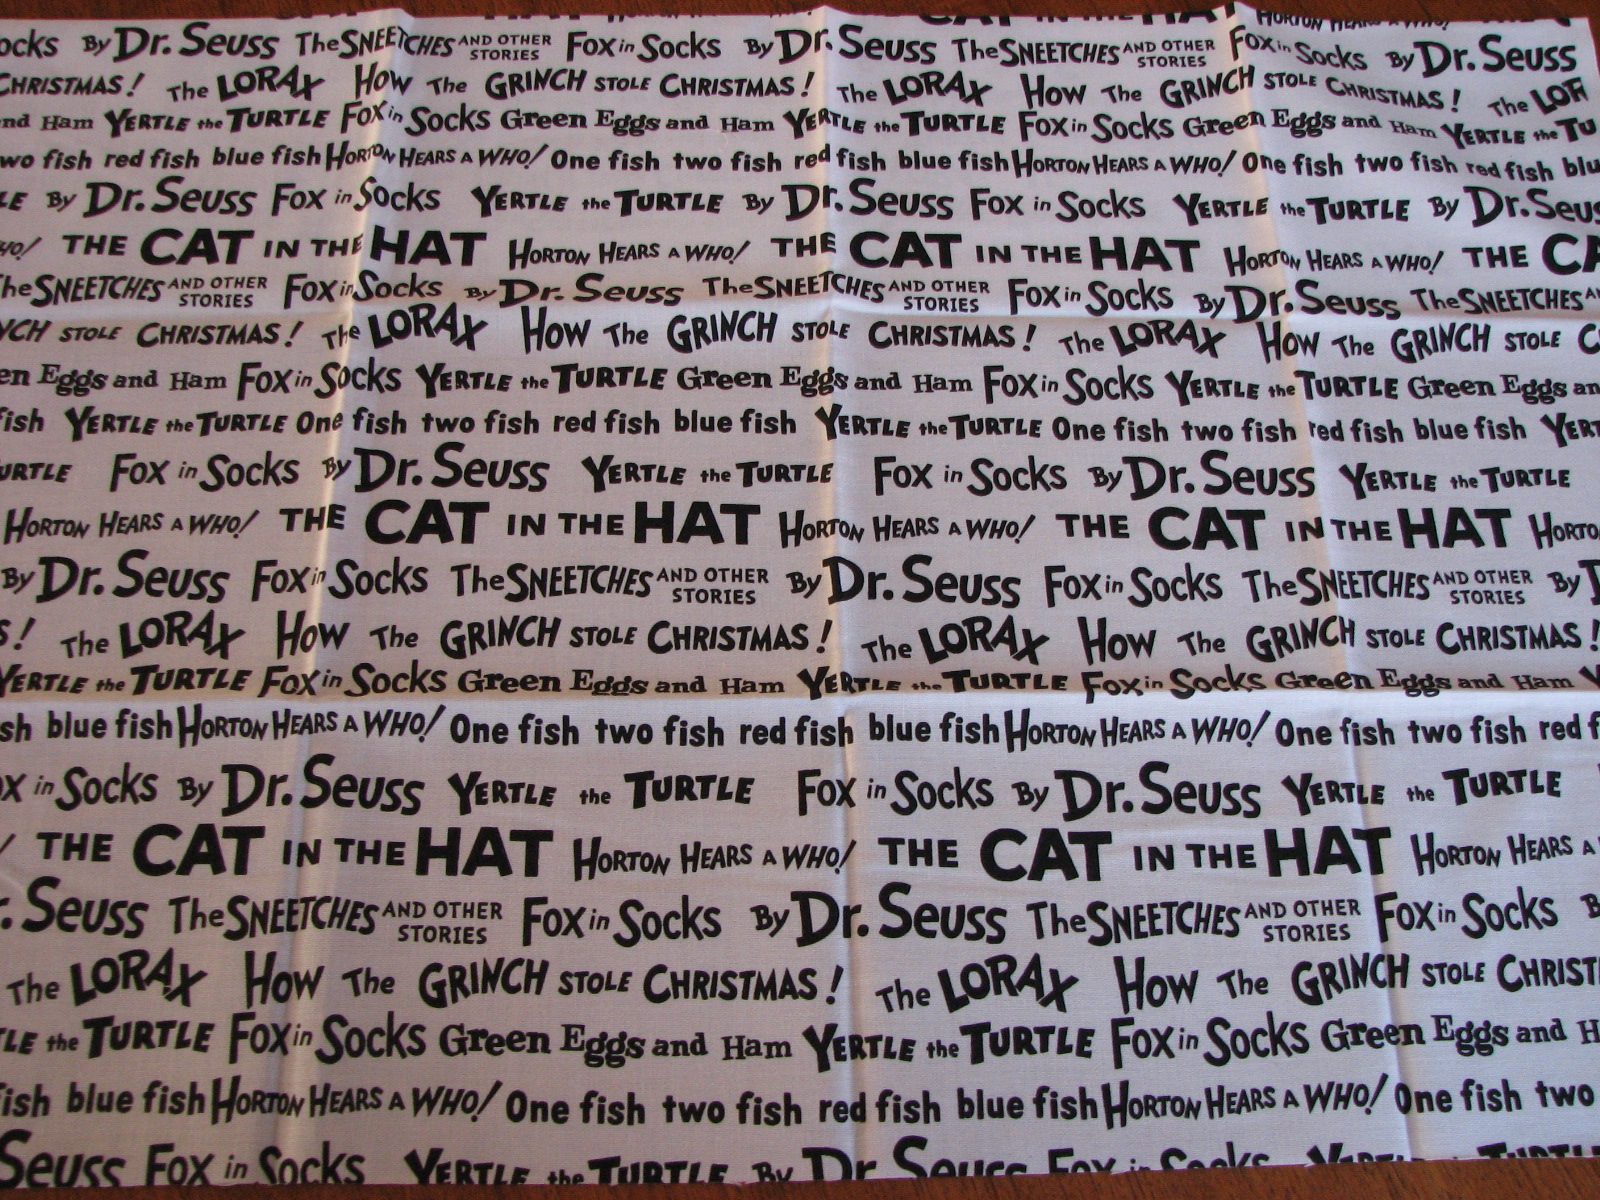 CAT IN THE HAT HORTON HEARS A WHO!
ocks By Dr. Seuss The SNEETCHES AND OTHER STORIES Fox in Socks By Dr. Seuss The SNEETCHES AND OTHER STORIES Fox in Socks By Dr. Seuss
CHRISTMAS! The LORAX How The GRINCH STOLE CHRISTMAS! The LORAX How The GRINCH STOLE CHRISTMAS! The LOR
nd Ham YERTLE the TURTLE Fox in Socks Green Eggs and Ham YERTLE the TURTLE Fox in Socks Green Eggs and Ham YERTLE the TU
wo fish red fish blue fish HORTON HEARS A WHO! One fish two fish red fish blue fish HORTON HEARS A WHO! One fish two fish red fish blu
LE By Dr. Seuss Fox in Socks YERTLE the TURTLE By Dr. Seuss Fox in Socks YERTLE the TURTLE By Dr. Seus
HO! THE CAT IN THE HAT HORTON HEARS A WHO! THE CAT IN THE HAT HORTON HEARS A WHO! THE CA
The SNEETCHES AND OTHER STORIES Fox in Socks By Dr. Seuss The SNEETCHES AND OTHER STORIES Fox in Socks By Dr. Seuss The SNEETCHES A
NCH STOLE CHRISTMAS! The LORAX How The GRINCH STOLE CHRISTMAS! The LORAX How The GRINCH STOLE C
en Eggs and Ham Fox in Socks YERTLE the TURTLE Green Eggs and Ham Fox in Socks YERTLE the TURTLE Green Eggs an
fish YERTLE the TURTLE One fish two fish red fish blue fish YERTLE the TURTLE One fish two fish red fish blue fish YERT
URTLE Fox in Socks By Dr. Seuss YERTLE the TURTLE Fox in Socks By Dr. Seuss YERTLE the TURTLE
HORTON HEARS A WHO! THE CAT IN THE HAT HORTON HEARS A WHO! THE CAT IN THE HAT HORTO
By Dr. Seuss Fox in Socks The SNEETCHES AND OTHER STORIES By Dr. Seuss Fox in Socks The SNEETCHES AND OTHER STORIES By D
S! The LORAX How The GRINCH STOLE CHRISTMAS! The LORAX How The GRINCH STOLE CHRISTMAS!
YERTLE the TURTLE Fox in Socks Green Eggs and Ham YERTLE the TURTLE Fox in Socks Green Eggs and Ham Y
sh blue fish HORTON HEARS A WHO! One fish two fish red fish blue fish HORTON HEARS A WHO! One fish two fish red f
ox in Socks By Dr. Seuss YERTLE the TURTLE Fox in Socks By Dr. Seuss YERTLE the TURTLE
! THE CAT IN THE HAT HORTON HEARS A WHO! THE CAT IN THE HAT HORTON HEARS A
r. Seuss The SNEETCHES AND OTHER STORIES Fox in Socks By Dr. Seuss The SNEETCHES AND OTHER STORIES Fox in Socks B
The LORAX How The GRINCH STOLE CHRISTMAS! The LORAX How The GRINCH STOLE CHRIST
TLE the TURTLE Fox in Socks Green Eggs and Ham YERTLE the TURTLE Fox in Socks Green Eggs and H
fish blue fish HORTON HEARS A WHO! One fish two fish red fish blue fish HORTON HEARS A WHO! One fish two
Seuss Fox in Socks YERTLE the TURTLE By Dr. Seuss Fox in Socks YERTLE the TURTL